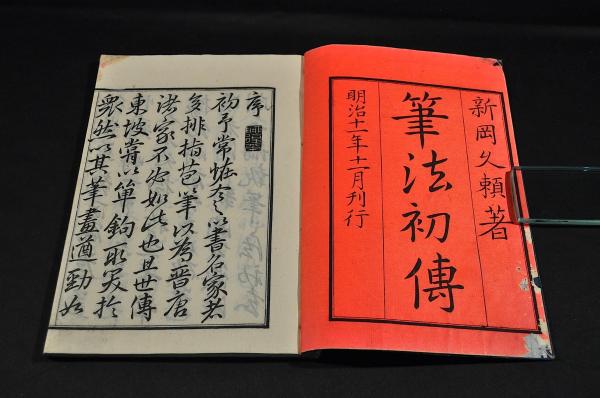 新岡久頼著
筆法初傳
明治十一年十一月刊行
序
初予常恠今之以書名家者
多排指苞筆以為晋唐
諸家不必如此也且世傳
東坡嘗以單鉤取笑於
衆然以其筆畫遒勁如